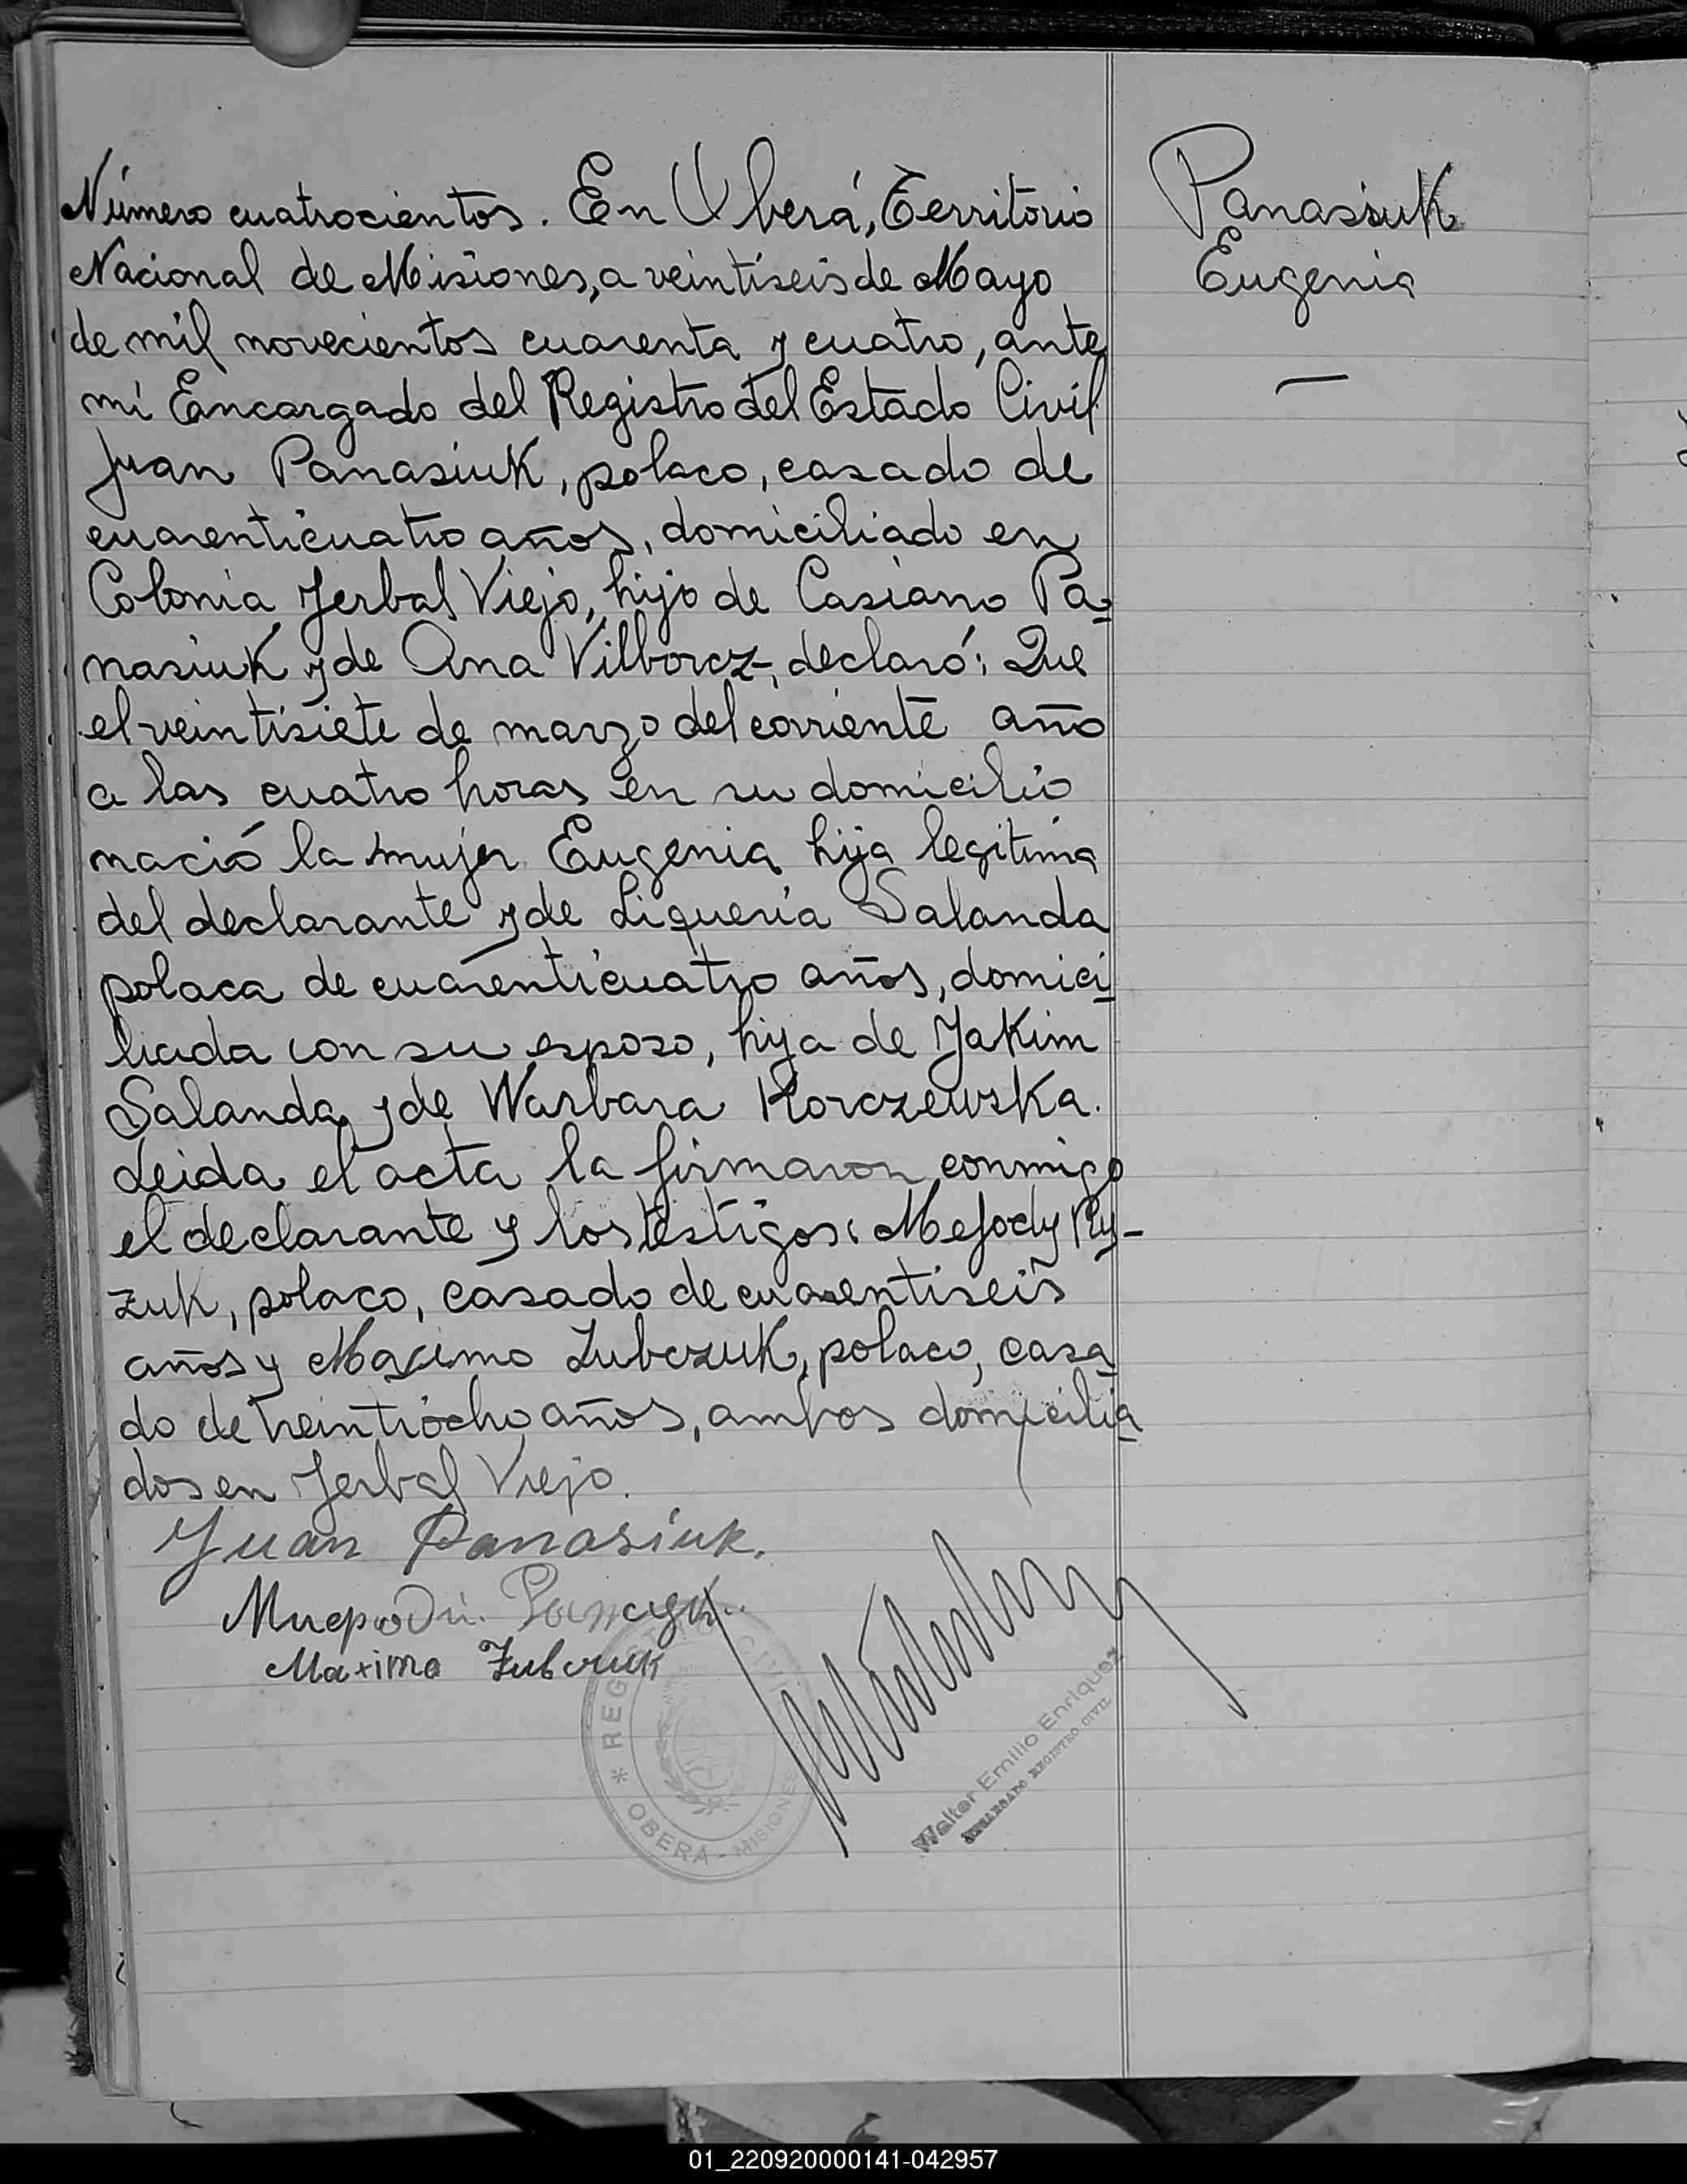 Número cuatrocientos. En Oberá, Territorio
Nacional de Misiones, a veintiseis de Mayo
de mil novecientos cuarenta y cuatro, ante
mi Encargado del Registro del Estado Civil
Juan Panasiuk, polaco, casado de
cuarenticuatro años, domiciliado en
Colonia Yerbal Viejo, hijo de Casiano Pa-
nasiuk y de Ana Vilborcz, declaró: Que
el veintisiete de marzo del corriente año
a las cuatro horas en su domicilio
nació la mujer Eugenia hija legitima
del declarante y de Liqueria Salanda
polaca de cuarenticuatro años, domici
liada con su esposo, hija de Jakim
Salanda y de Warbara Korczewska.
Leida el acta la firmaron conmigo
el declarante y los testigos: Mefody Ry-
zuk, polaco, casado de cuarentiseis
años y Maximo Zubczuk, polaco, casa
do de treintiocho años, ambos domicilia
dos en Yerbal Viejo.
Juan Panasiuk.
Maximo Zubczuk
Panasiuk
Eugenia
REGISTRO CIVIL
* OBERÁ - MISIONES
Walter Emilio Enriquez
ENCARGADO REGISTRO CIVIL
01_220920000141-042957